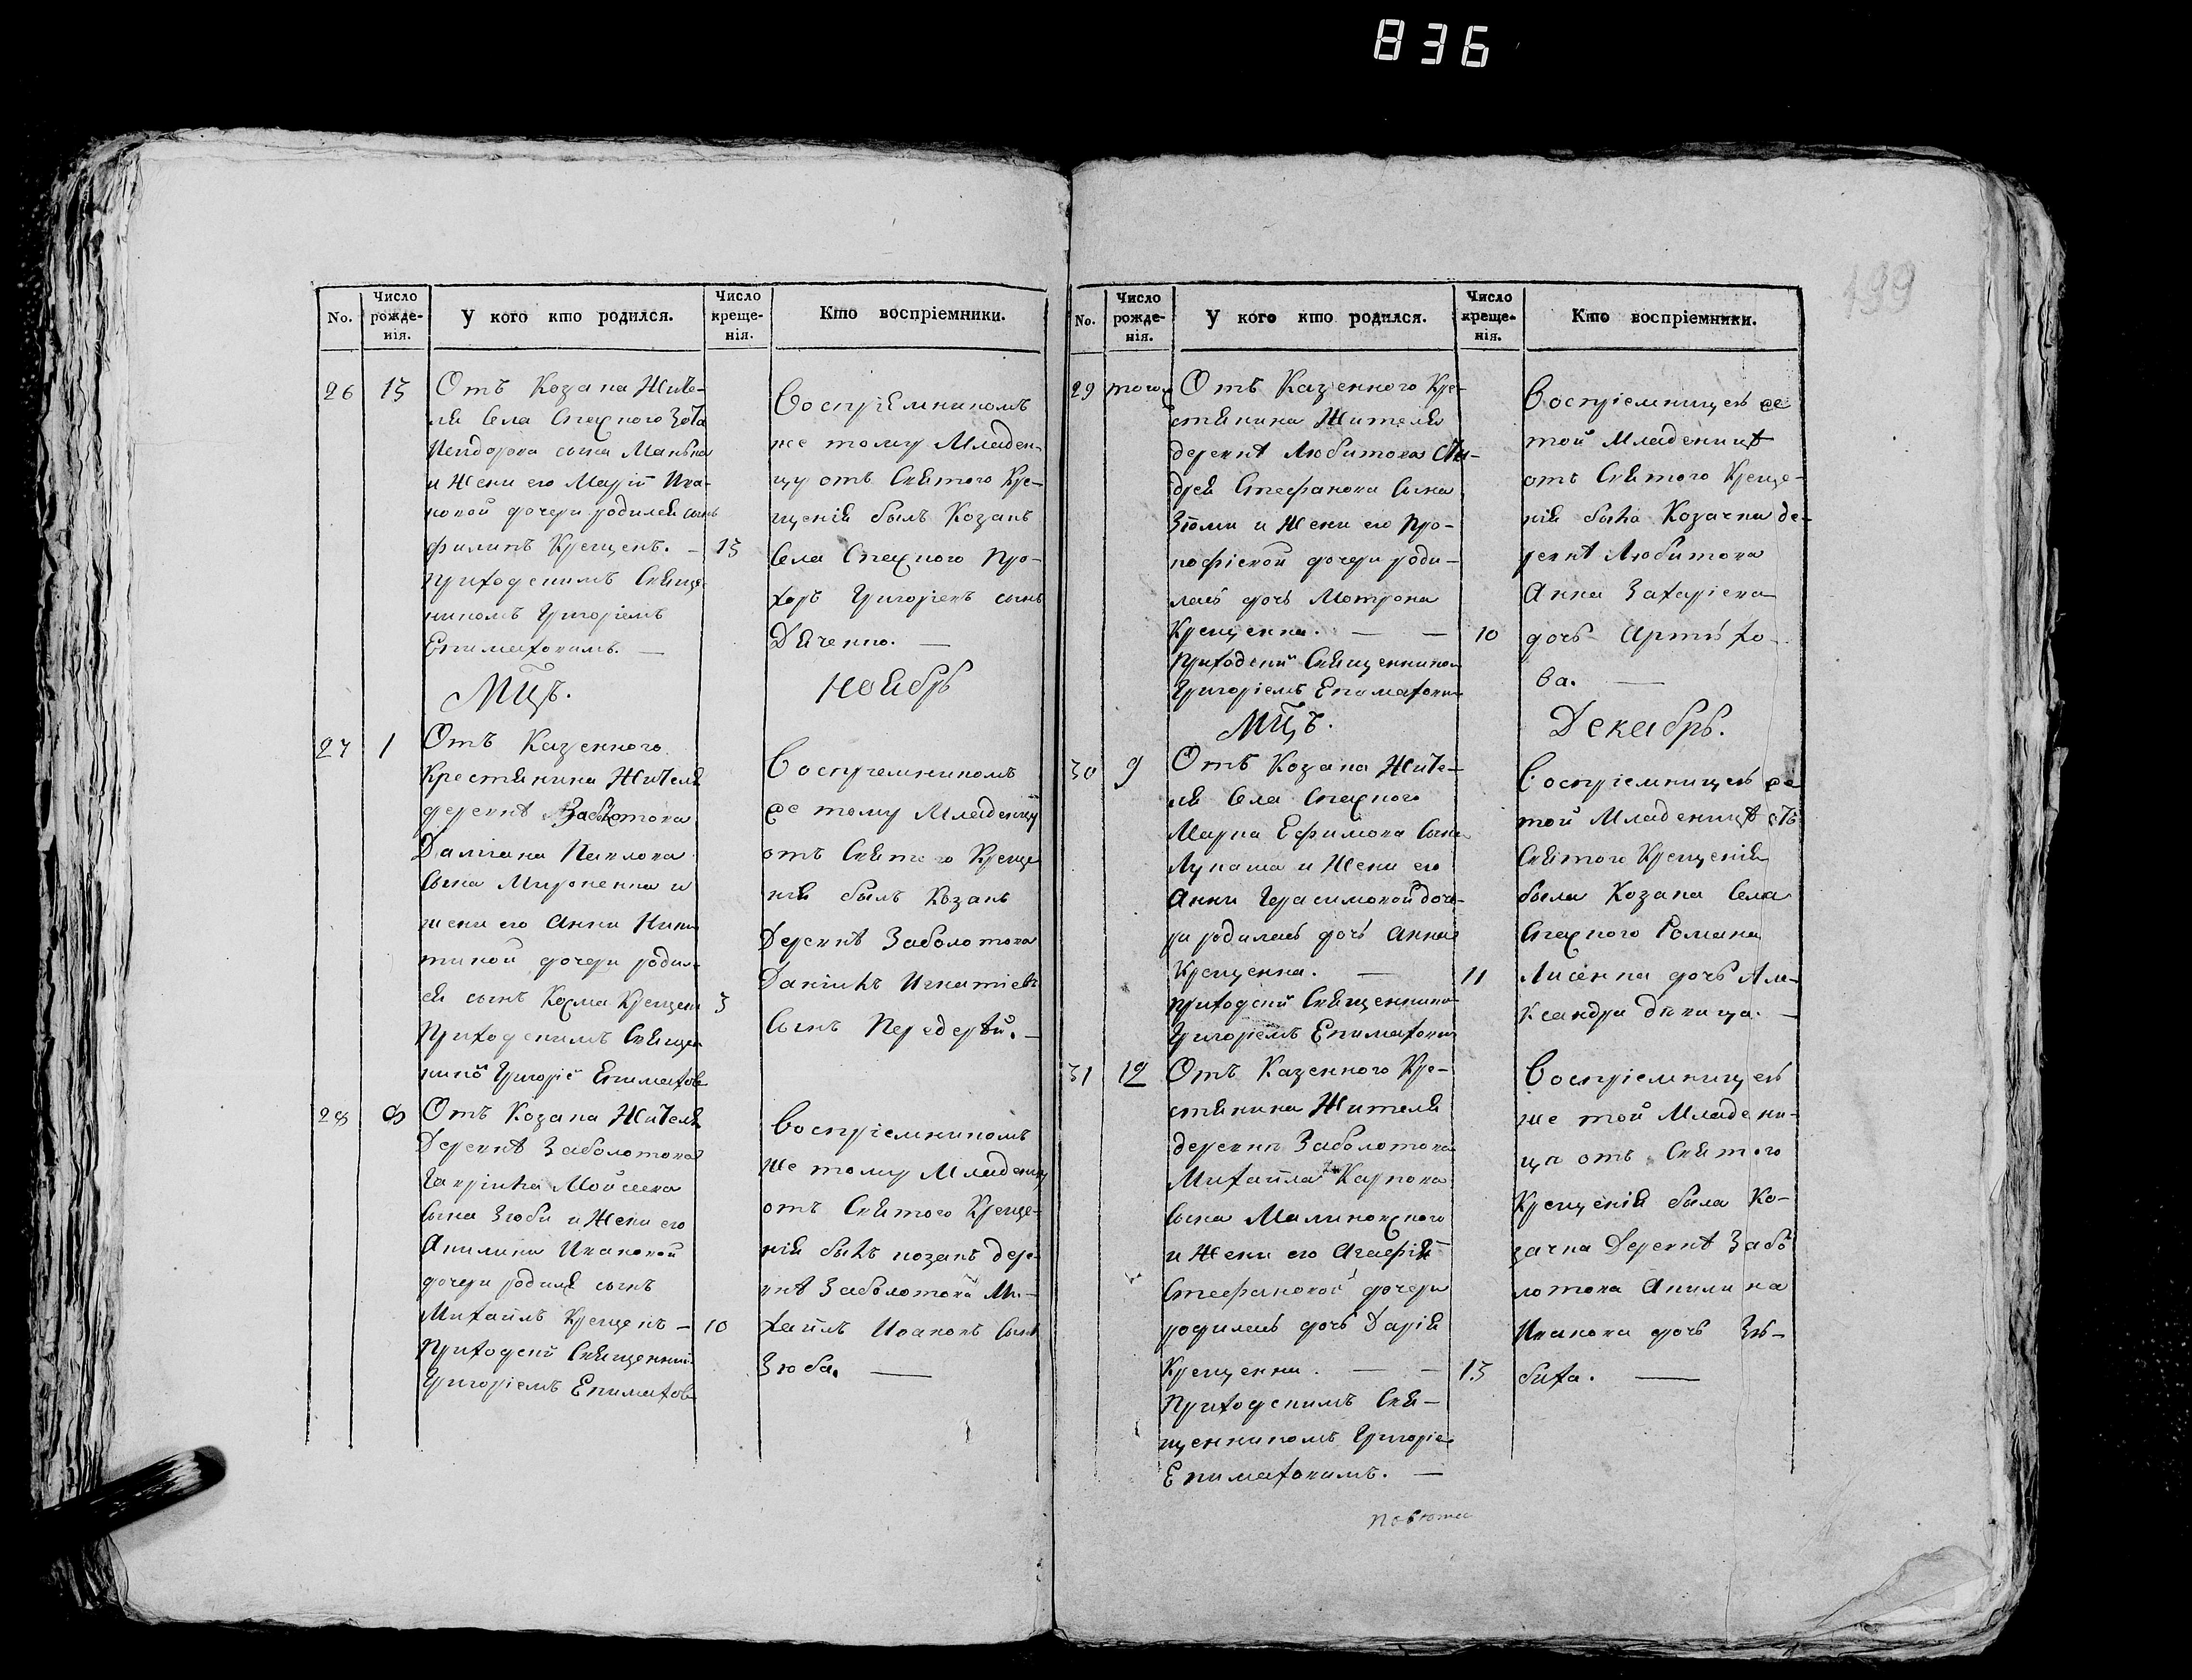 836
199
No.
Число рожде-нія.
У кого кто родился.
Число креще-нія.
Кто воспріемники.
26
15
Отъ Козака Жите-
ля Села Спаского Зота
Исидорова сына Манька
и Жени его Маріи Ива-
новой дочери родился сынъ
Филипъ Крещенъ. —
15
приходскимъ Свяще
никомъ Григоріемъ
Епимаховимъ. —
Воспріемникомъ
же тому Младен-
цу отъ Святого Кре-
щенія былъ Козакъ
Села Спаского Про-
хоръ Григоріевъ сынъ
Дяченко. —
Мцъ.
Ноябрь
27
1
Отъ Казенного
Крестянина Жителя
деревнѣ Заболотова
Даміана Павлова
Сына Мироненка и
жени его Анни Ники
тиной дочери родил-
ся сынъ Козма Крещен
3
Приходскимъ Священ
нико Григоріе Епимахов
Воспріемникомъ
же тому Младенцу
отъ Святого Креще
нія былъ Козакъ
Деревнѣ Заболотова
Даніилъ Игнатіевъ
Сынъ Передерѣй. —
28
8
Отъ Козака Жителя
Деревнѣ Заболотова
Гавріила Мойсеева
Сына Зюби и Жени его
Акилини Ивановой
дочери родился сынъ
Михаилъ Крещенъ —
10
Приходскй Священний
Григоріемъ Епимахов
Воспріемникомъ
же тому Младенцу
отъ Святого Креще-
нія былъ козакъ дере
внѣ Заболотова Ми-
хаилъ Ивановъ Сынъ
Зюба. —
No.
Число рожде-нія.
У кого кто родился.
Число креще-нія.
Кто воспріемники.
29
тогож
Отъ Казенного Кре-
стянина Жителя
деревнѣ Любитова Ан-
дрея Стефанова Сына
Зюми и Жени его Про-
кофіевой дочери роди-
лась дочь Мотрона
Крещенна. — —
10
Приходскй Священником
Григоріемъ Епимахови
Воспріемницею же
той Младеницѣ
отъ Святого Креще-
нія была Козачка де-
ревнѣ Любитова
Анна Захаріева
дочь Артюхо-
ва. —
Мцъ.
Декабрь.
30
9
Отъ Козака Жите-
ля Села Спаского
Марка Ефимова Сына
Лукаша и Жени его
Анни Герасимовой доче-
ри родилась дочь Анна
Крещенна. —
11
приходскй Священнико
Григоріемъ Епимахови
Воспріемницею же
той Младеницѣ отъ
Святого Крещенія
была Козака Села
Спаского Романа
Лисенка дочь Але-
ксандра дѣвица. —
31
12
Отъ Казенного Кре-
стянина Жителя
деревнѣ Заболотова
Михайла Карпова
Сына Малиновского
и Жени его Агафіи
Стефановой дочери
родилась дочь Дарія
Крещенна. — —
13
Приходскимъ Свя-
щенникомъ Григоріе
Епимаховимъ. —
Воспріемницею
же той Младени-
ца отъ Святого
Крещенія была Ко-
зачка Деревнѣ Забо
лотова Акилина
Иванова дочь Зю-
биха. —